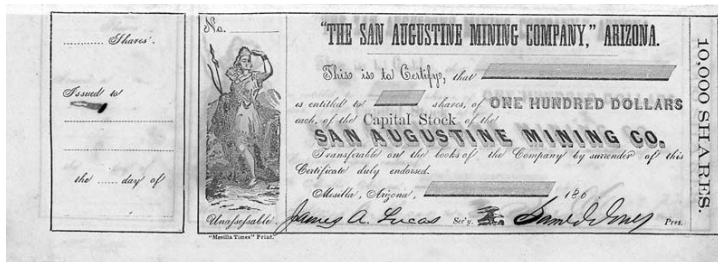 Shares.
Issued to
the day of
No.
"THE SAN AUGUSTINE MINING COMPANY," ARIZONA.
This is to Certify, that
is entitled to shares, of ONE HUNDRED DOLLARS
each, of the Capital Stock of the
SAN AUGUSTINE MINING CO.
Transferable on the books of the Company by surrender of this
Certificate duly endorsed.
Mesilla, Arizona, 186
Unassessable. James A. Lucas Sec'y. Saml Jones Pres.
"Mesilla Times" Print.
10,000 SHARES.